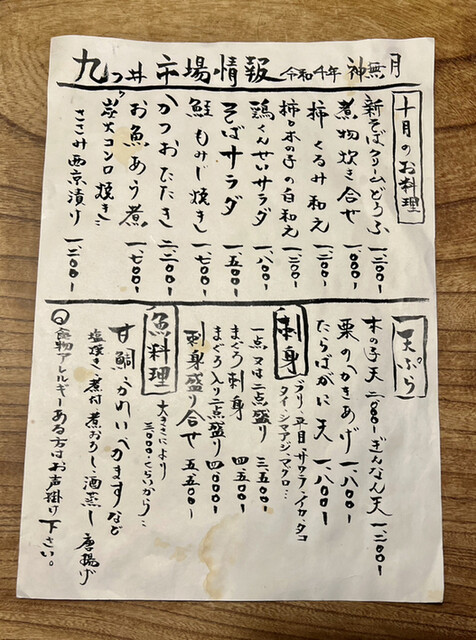 九つ井市場情報 令和4年 神無月
十月のお料理
新そばクリームどうふ 一、二〇〇ー
煮物炊き合せ 一、〇〇〇ー
柿くるみ和え 一、二〇〇ー
柿と木の子の白和え 一、二〇〇ー
鶏くんせいサラダ 一、八〇〇ー
そばサラダ 一、五〇〇ー
鮭もみじ焼き 一、七〇〇ー
かつおたたき 二、二〇〇ー
お魚あら煮 一、七〇〇ー
炭火コンロ焼き
ささみ西京漬り 一、二〇〇ー
天ぷら
木の子天 二、〇〇〇ー ぎんなん天 一、二〇〇ー
栗のかきあげ 一、八〇〇ー
たらばがに天 一、八〇〇ー
刺身
ブリ、平目、サワラ、イカ、タコ
タイ、シマアジ、マグロ…
一点又は二点盛り 三、五〇〇ー
まぐろ刺身 四、五〇〇ー
まぐろ入り二点盛り 四、〇〇〇ー
刺身盛り合せ 五、五〇〇ー
魚料理
大きさにより
三、〇〇〇ーくらいから…
甘鯛、かれい、べかますなど
塩焼き、煮付、煮おろし、酒蒸し、唐揚げ
食物アレルギーある方はお声掛け下さい。